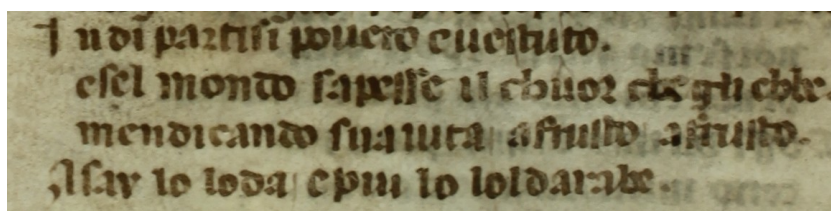 Indi partisi pouero euetusto.
esel mondo sapesse il chuor che gli ebbe.
mendicando sua uita a frusto a frusto.
Asay lo loda e piu lo loldarabe.